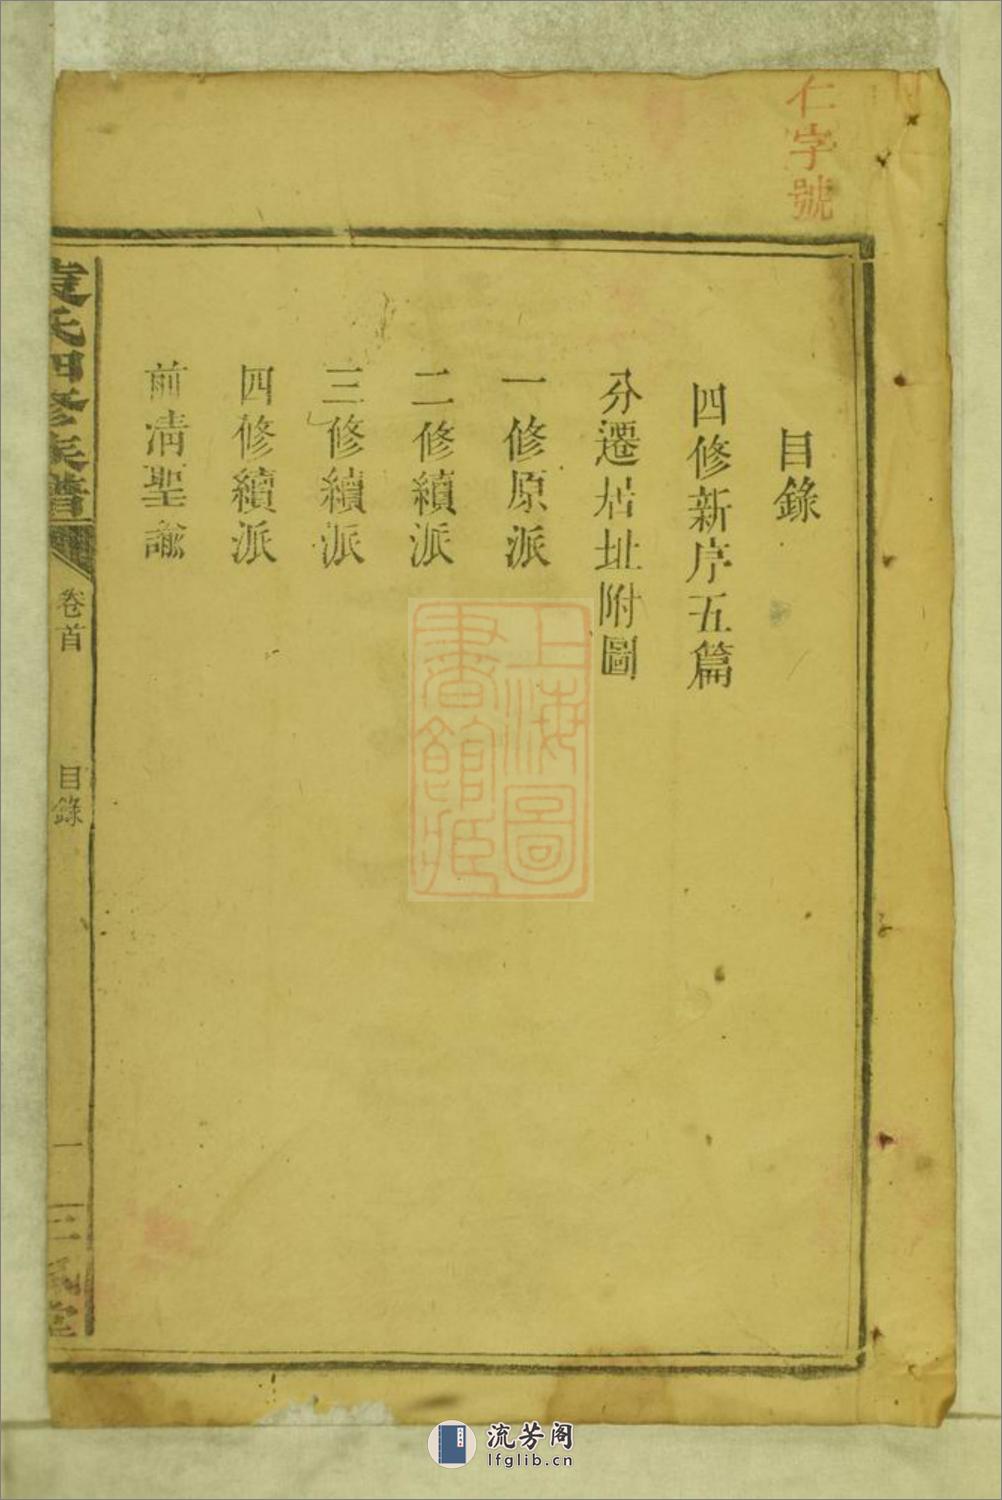 仁字號
目錄
四修新序五篇
分遷居址附圖
一修原派
二修續派
三修續派
四修續派
前清聖諭
氏四修族譜
卷首
目錄
一
三
堂
上海圖
書館藏
流芳阁
lfglib.cn